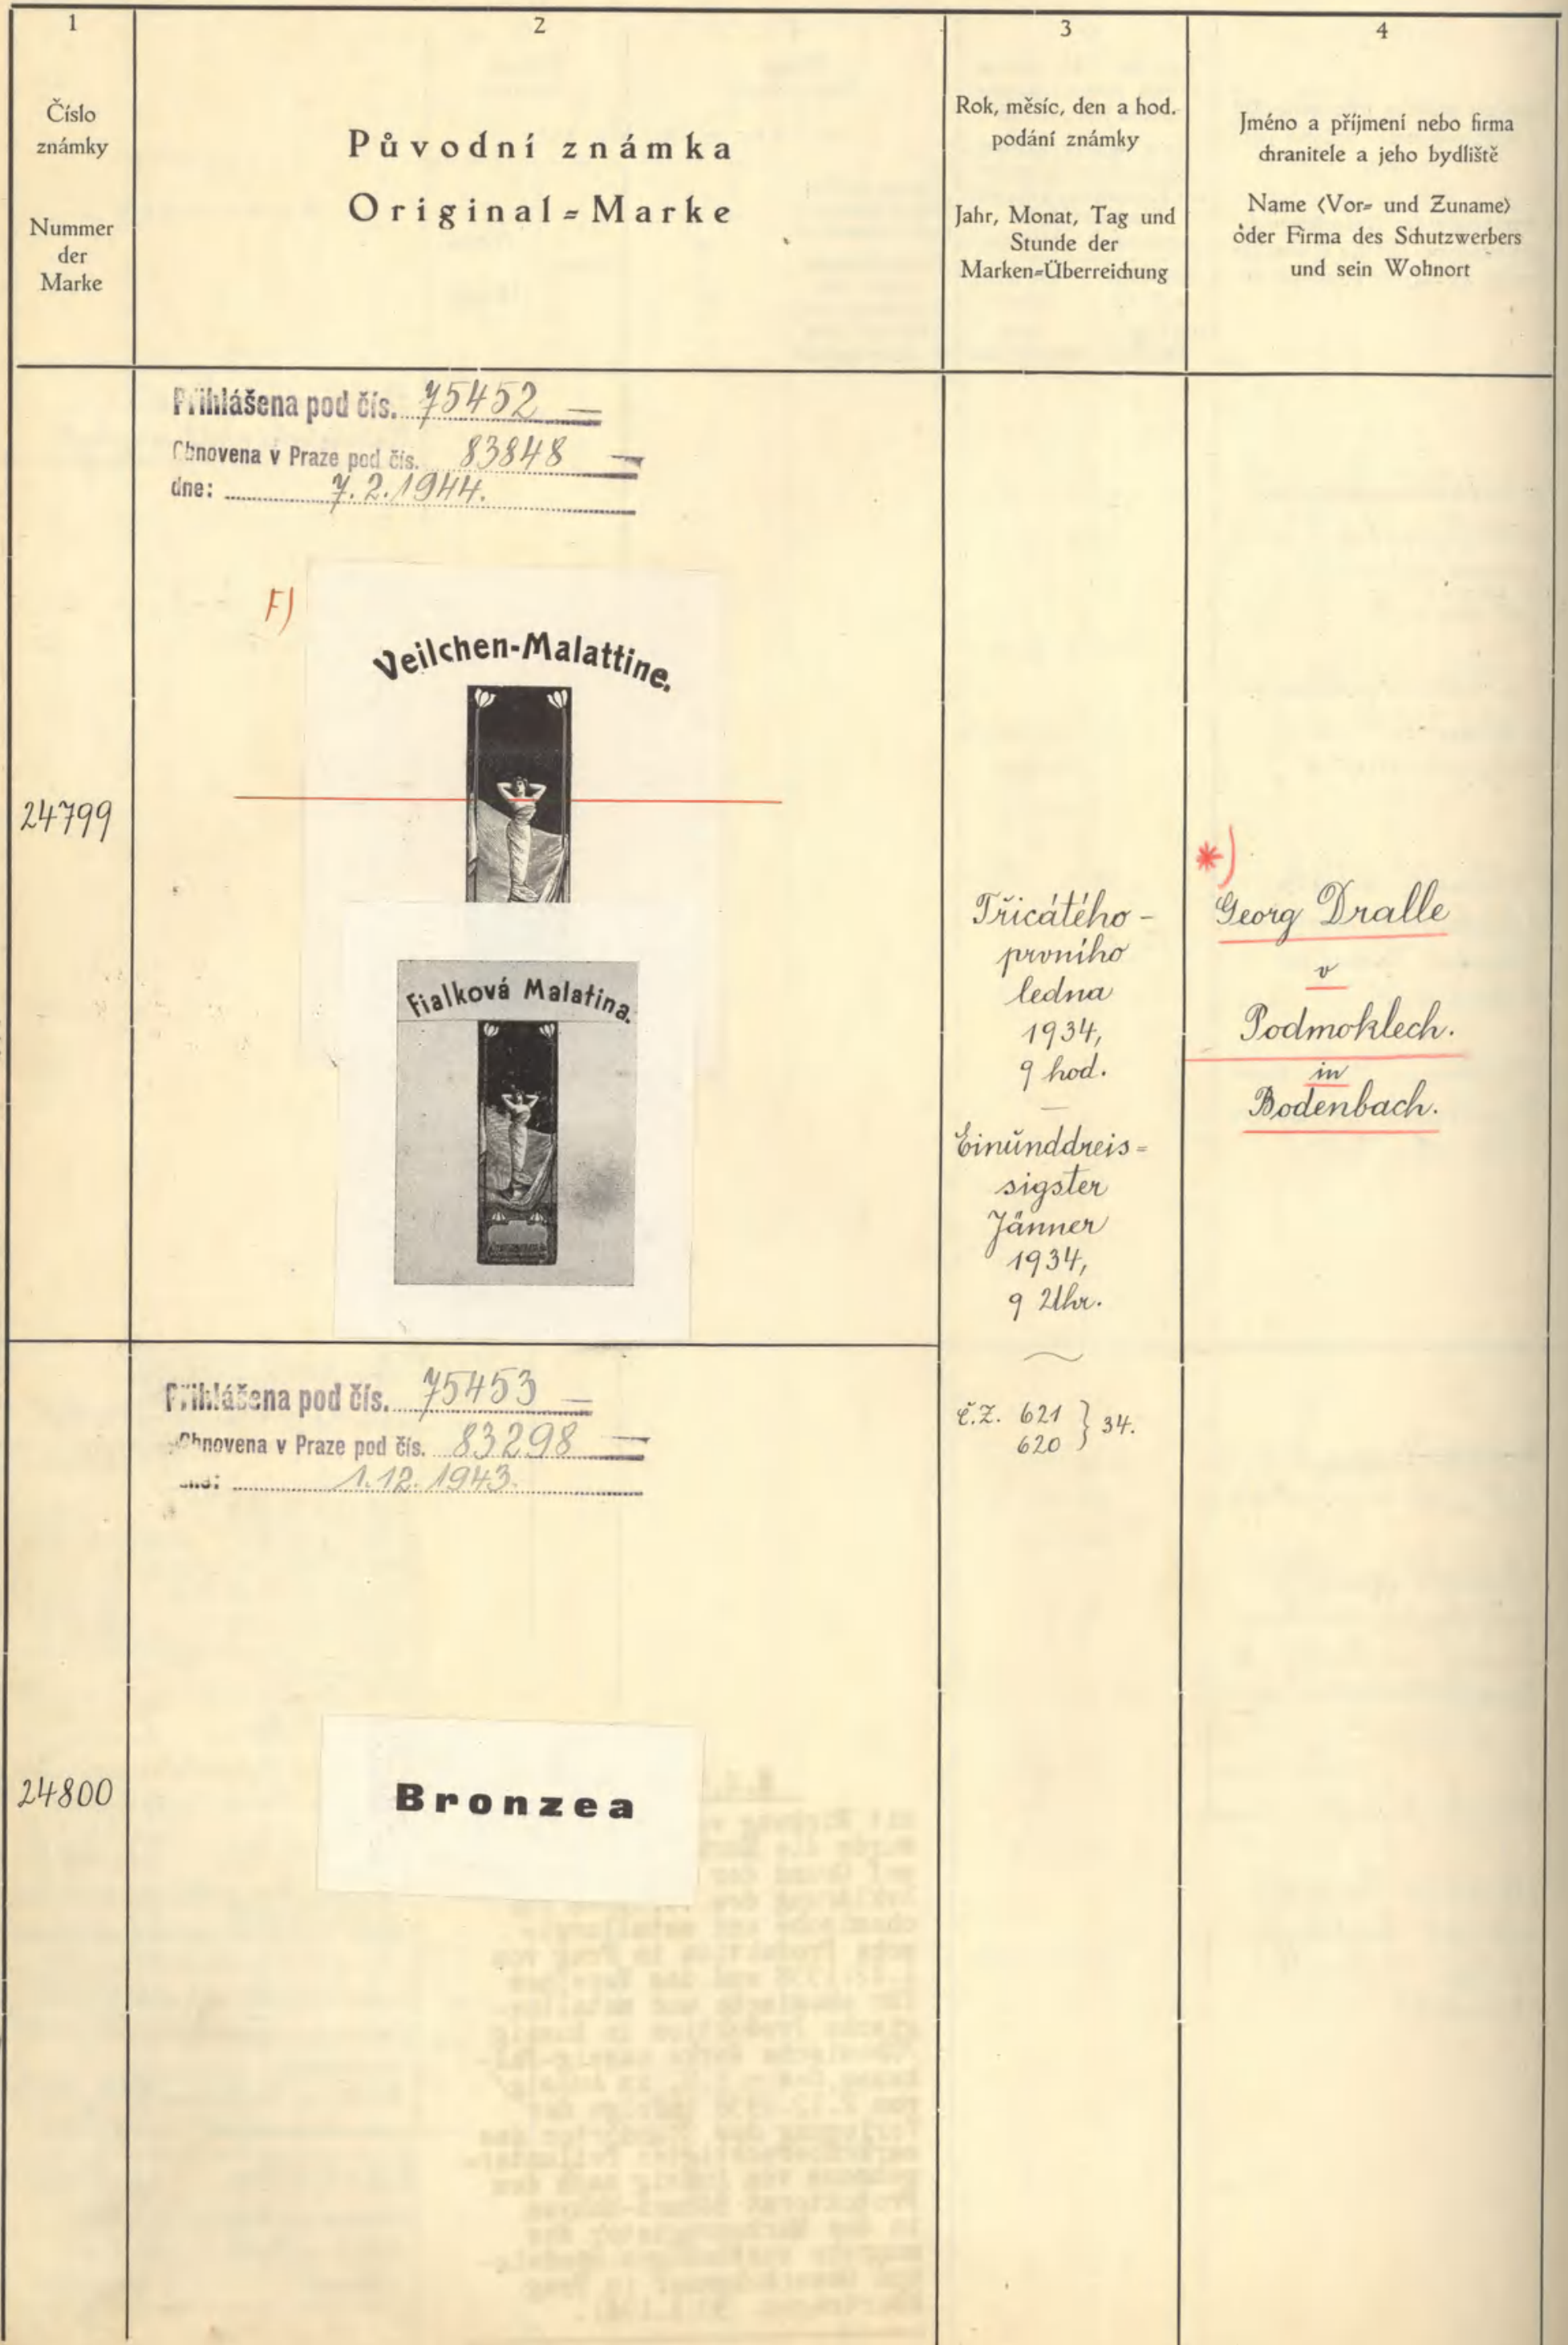 1
Číslo
známky
Nummer
der
Marke
2
Původní známka
Original=Marke
3
Rok, měsíc, den a hod.
podání známky
Jahr, Monat, Tag und
Stunde der
Marken=Überreichung
4
Jméno a příjmení nebo firma
chranitele a jeho bydliště
Name (Vor= und Zuname)
oder Firma des Schutzwerbers
und sein Wohnort
24799
Přihlášena pod čís. 75452 —
Obnovena v Praze pod čís. 83848 —
dne: 7.2.1944.
F)
Veilchen-Malattine.
Fialková Malatina.
Třicátého-
prvního
ledna
1934,
9 hod.
Einunddreis=
sigster
Jänner
1934,
9 Uhr.
č.z. 621 } 34.
620
*)
Georg Dralle
v
Podmoklech.
in
Bodenbach.
24800
Přihlášena pod čís. 75453 —
Obnovena v Praze pod čís. 83298 —
dne: 1.12.1943.
Bronzea